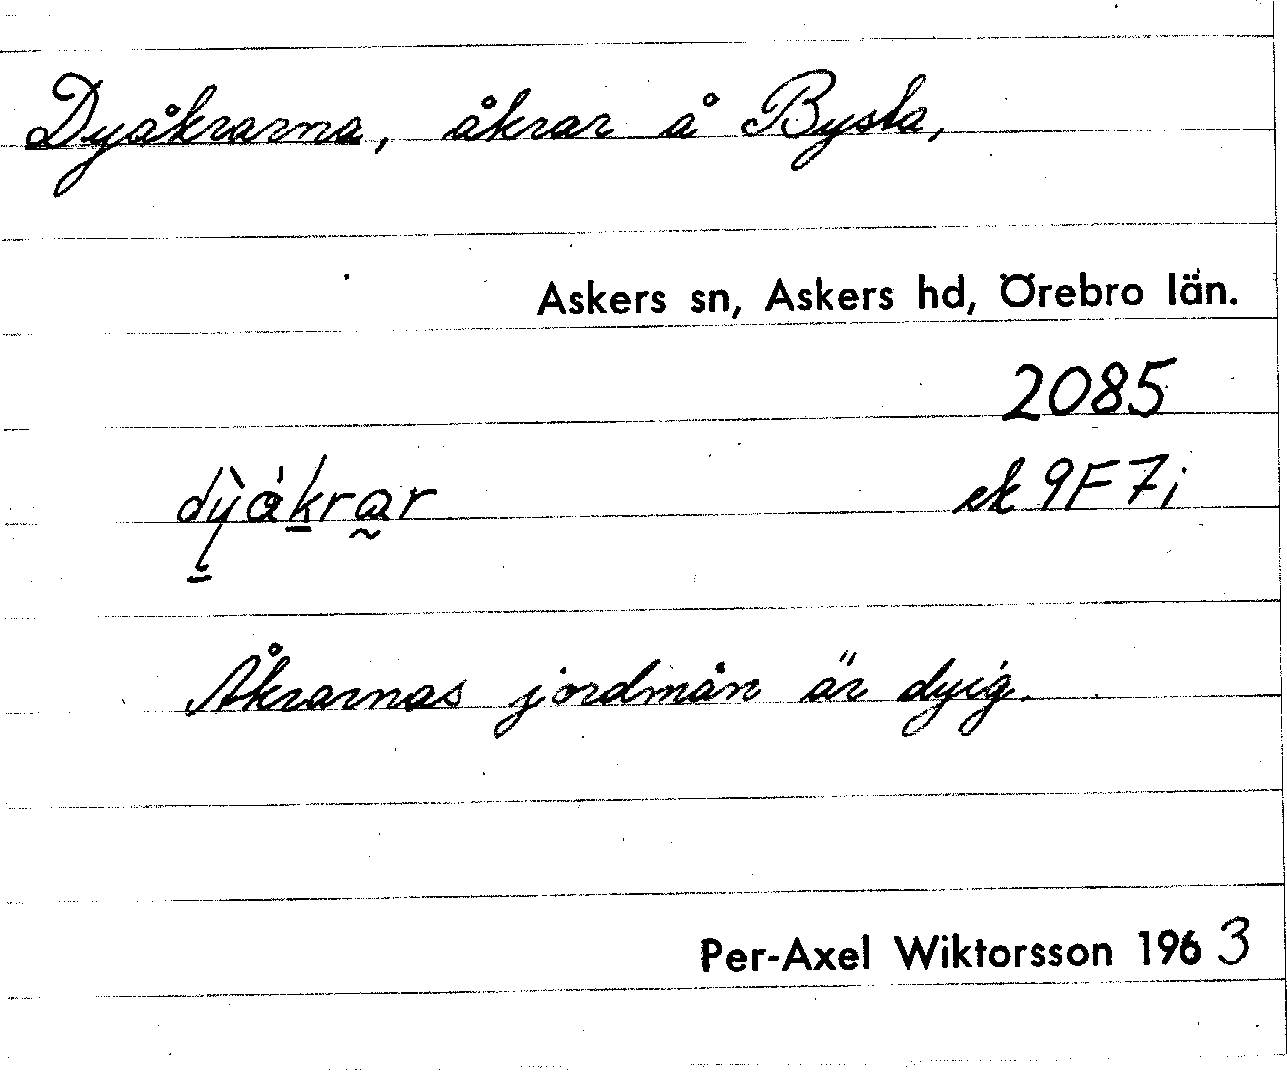 Dyåkrarna, åkrar å Bysta,
Askers sn, Askers hd, Örebro län.
2085
dỳåkrar ek 9F7i
Åkrarnas jordmån är dyig.
Per-Axel Wiktorsson 1963